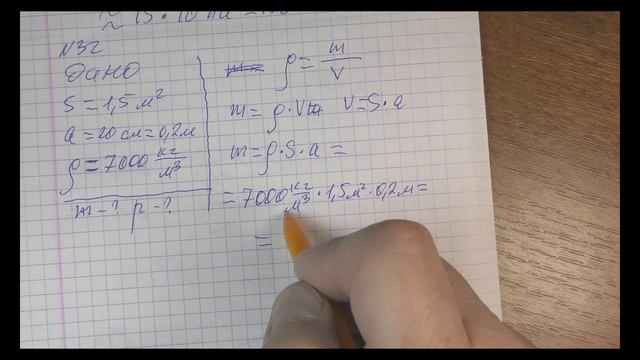 ≈ 15 · 10
N32
Дано
S = 1,5 м²
a = 20 см = 0,2 м
ρ = 7000 кг/м³
m - ? p - ?
ρ = m/V
m = ρ · V V = S · a
m = ρ · S · a =
= 7000 кг/м³ · 1,5 м² · 0,2 м =
=